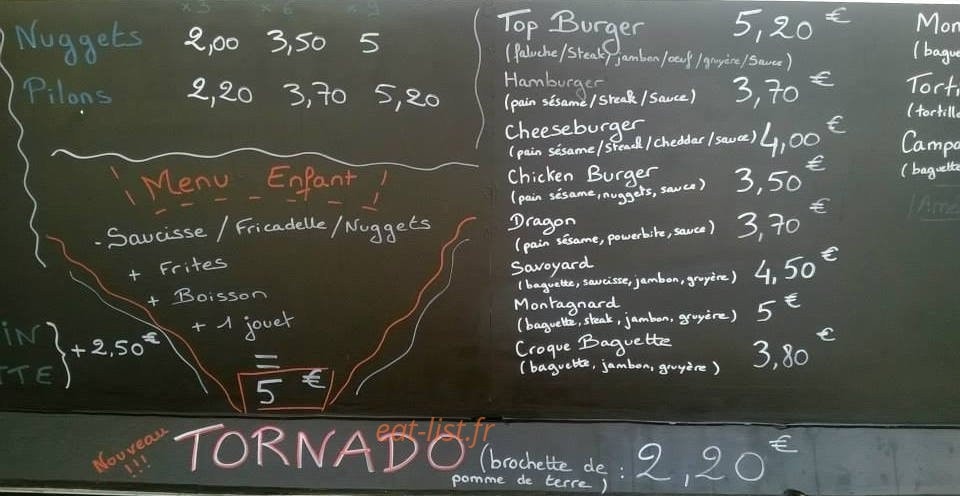 x3 x6 x9
Nuggets 2,00 3,50 5
Pilons 2,20 3,70 5,20
Menu Enfant
- Saucisse / Fricadelle / Nuggets
+ Frites
+ Boisson
+ 1 jouet
=
5 €
IN
TTE
} +2,50€
Top Burger 5,20 €
(faluche/Steak/jambon/oeuf/gruyère/Sauce)
Hamburger 3,70 €
(pain sésame/Steak/Sauce)
Cheeseburger 4,00 €
(pain sésame/Steack/cheddar/sauce)
Chicken Burger 3,50 €
(pain sésame, nuggets, sauce)
Dragon 3,70 €
(pain sésame, powerbite, sauce)
Savoyard 4,50 €
(baguette, saucisse, jambon, gruyère)
Montagnard 5 €
(baguette, steak, jambon, gruyère)
Croque Baguette 3,80 €
(baguette, jambon, gruyère)
Mon
(bague
Tort
(tortille
Campa
(baguette
Ame
Nouveau !!!
TORNADO (brochette de pomme de terre) : 2,20 €
eat-list.fr